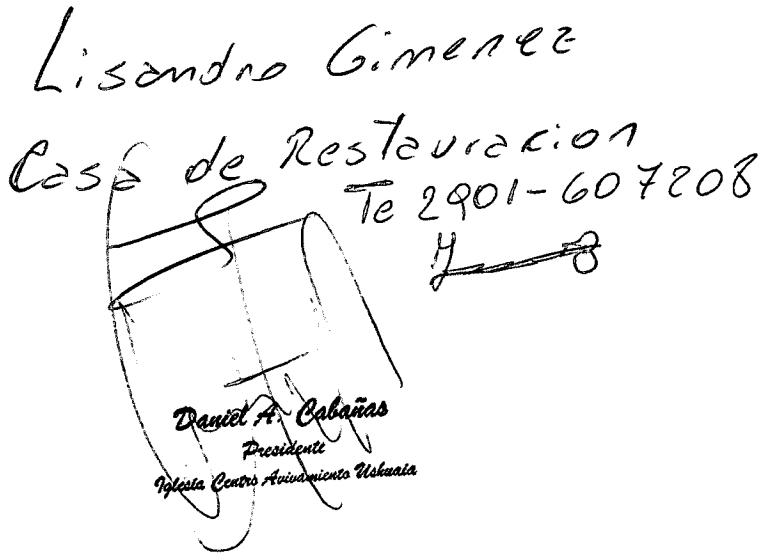 Lisandro Gimenez
Casa de Restauracion
Te 2901-607208
Daniel A. Cabañas
Presidente
Iglesia Centro Avivamiento Ushuaia